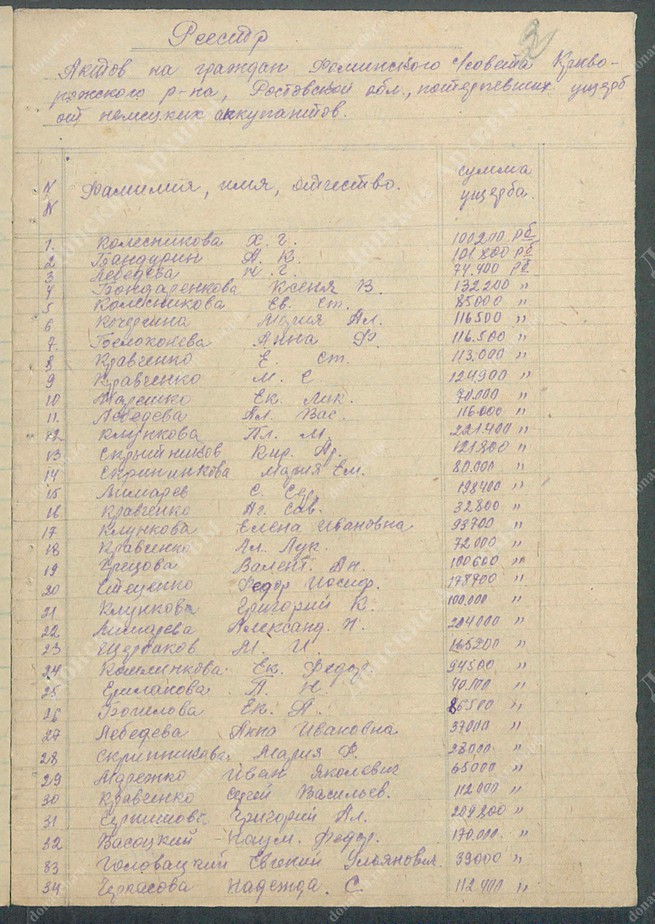 2
Реестр
Актов на граждан Фоминского с/совета Криво-
рожского р-на, Ростовской обл., потерпевших ущерб
от немецких оккупантов.
N N Фамилия, имя, отчество. сумма ущерба.
1. Колесникова Х. Г. 100200 рб
2 Бандурин А. К. 101800 рб
3 Лебедева Г. 74.400 рб
4 Бондаренкова Ксеня В. 132200 "
5 Колесникова Ев. Ст. 85000 "
6 Кочергина Мария Ал. 116500 "
7. Белоконева Анна Ф. 116.500 "
8 Кравченко Е. Ст. 113.000 "
9 Кравченко М. С 124900 "
10 Ек. Мик. 70.000 "
11. Лебедева Ал. Вас. 116000 "
12 Клункова Пл. М. 221400 "
13 Скрытников Кир. Ар. 121800 "
14 Скрипникова Мария Ем. 80.000 "
15 Лимарев С. Сер. 198400 "
16 Кравченко Аг. Сав. 32800 "
17 Клункова Елена Ивановна 93700 "
18 Кравченко Ал. Лук. 72000 "
19 Валент. Ан. 100600 "
20 Стеценко Федор Иосиф. 178900 "
21 Клункова Григорий К. 100.000 "
22. Лимарева Александ. 204000 "
23 Щербаков М. И. 165200 "
24 Ек. Федор. 94500 "
25 Ермакова П. Н. 40.100 "
26 Ек. П. 86500 "
27 Лебедева Анна Ивановна 37000 "
28 Скрипникова Мария Ф. 28000 "
29 Марежко Иван Яковлевич 65000 "
30 Кравченко Сергей Васильев. 112000 "
31 Григорий Ал. 209800 "
32 Васоцкий Наум. Федор. 170.000. "
33 Головацкий Евгений Ульянович. 39000 "
34 Черкасова Надежда. С. 112.400 "